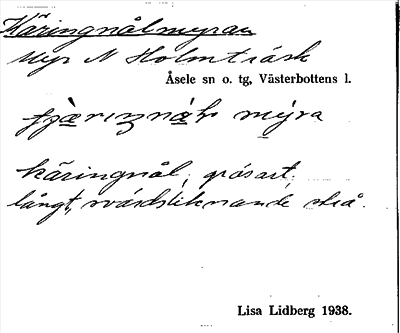 Käringnålmyran
Myr N Holmträsk
Åsele sn o. tg, Västerbottens l.
myra
käringnål, gräsart,
långt, svärdsliknande strå.
Lisa Lidberg 1938.